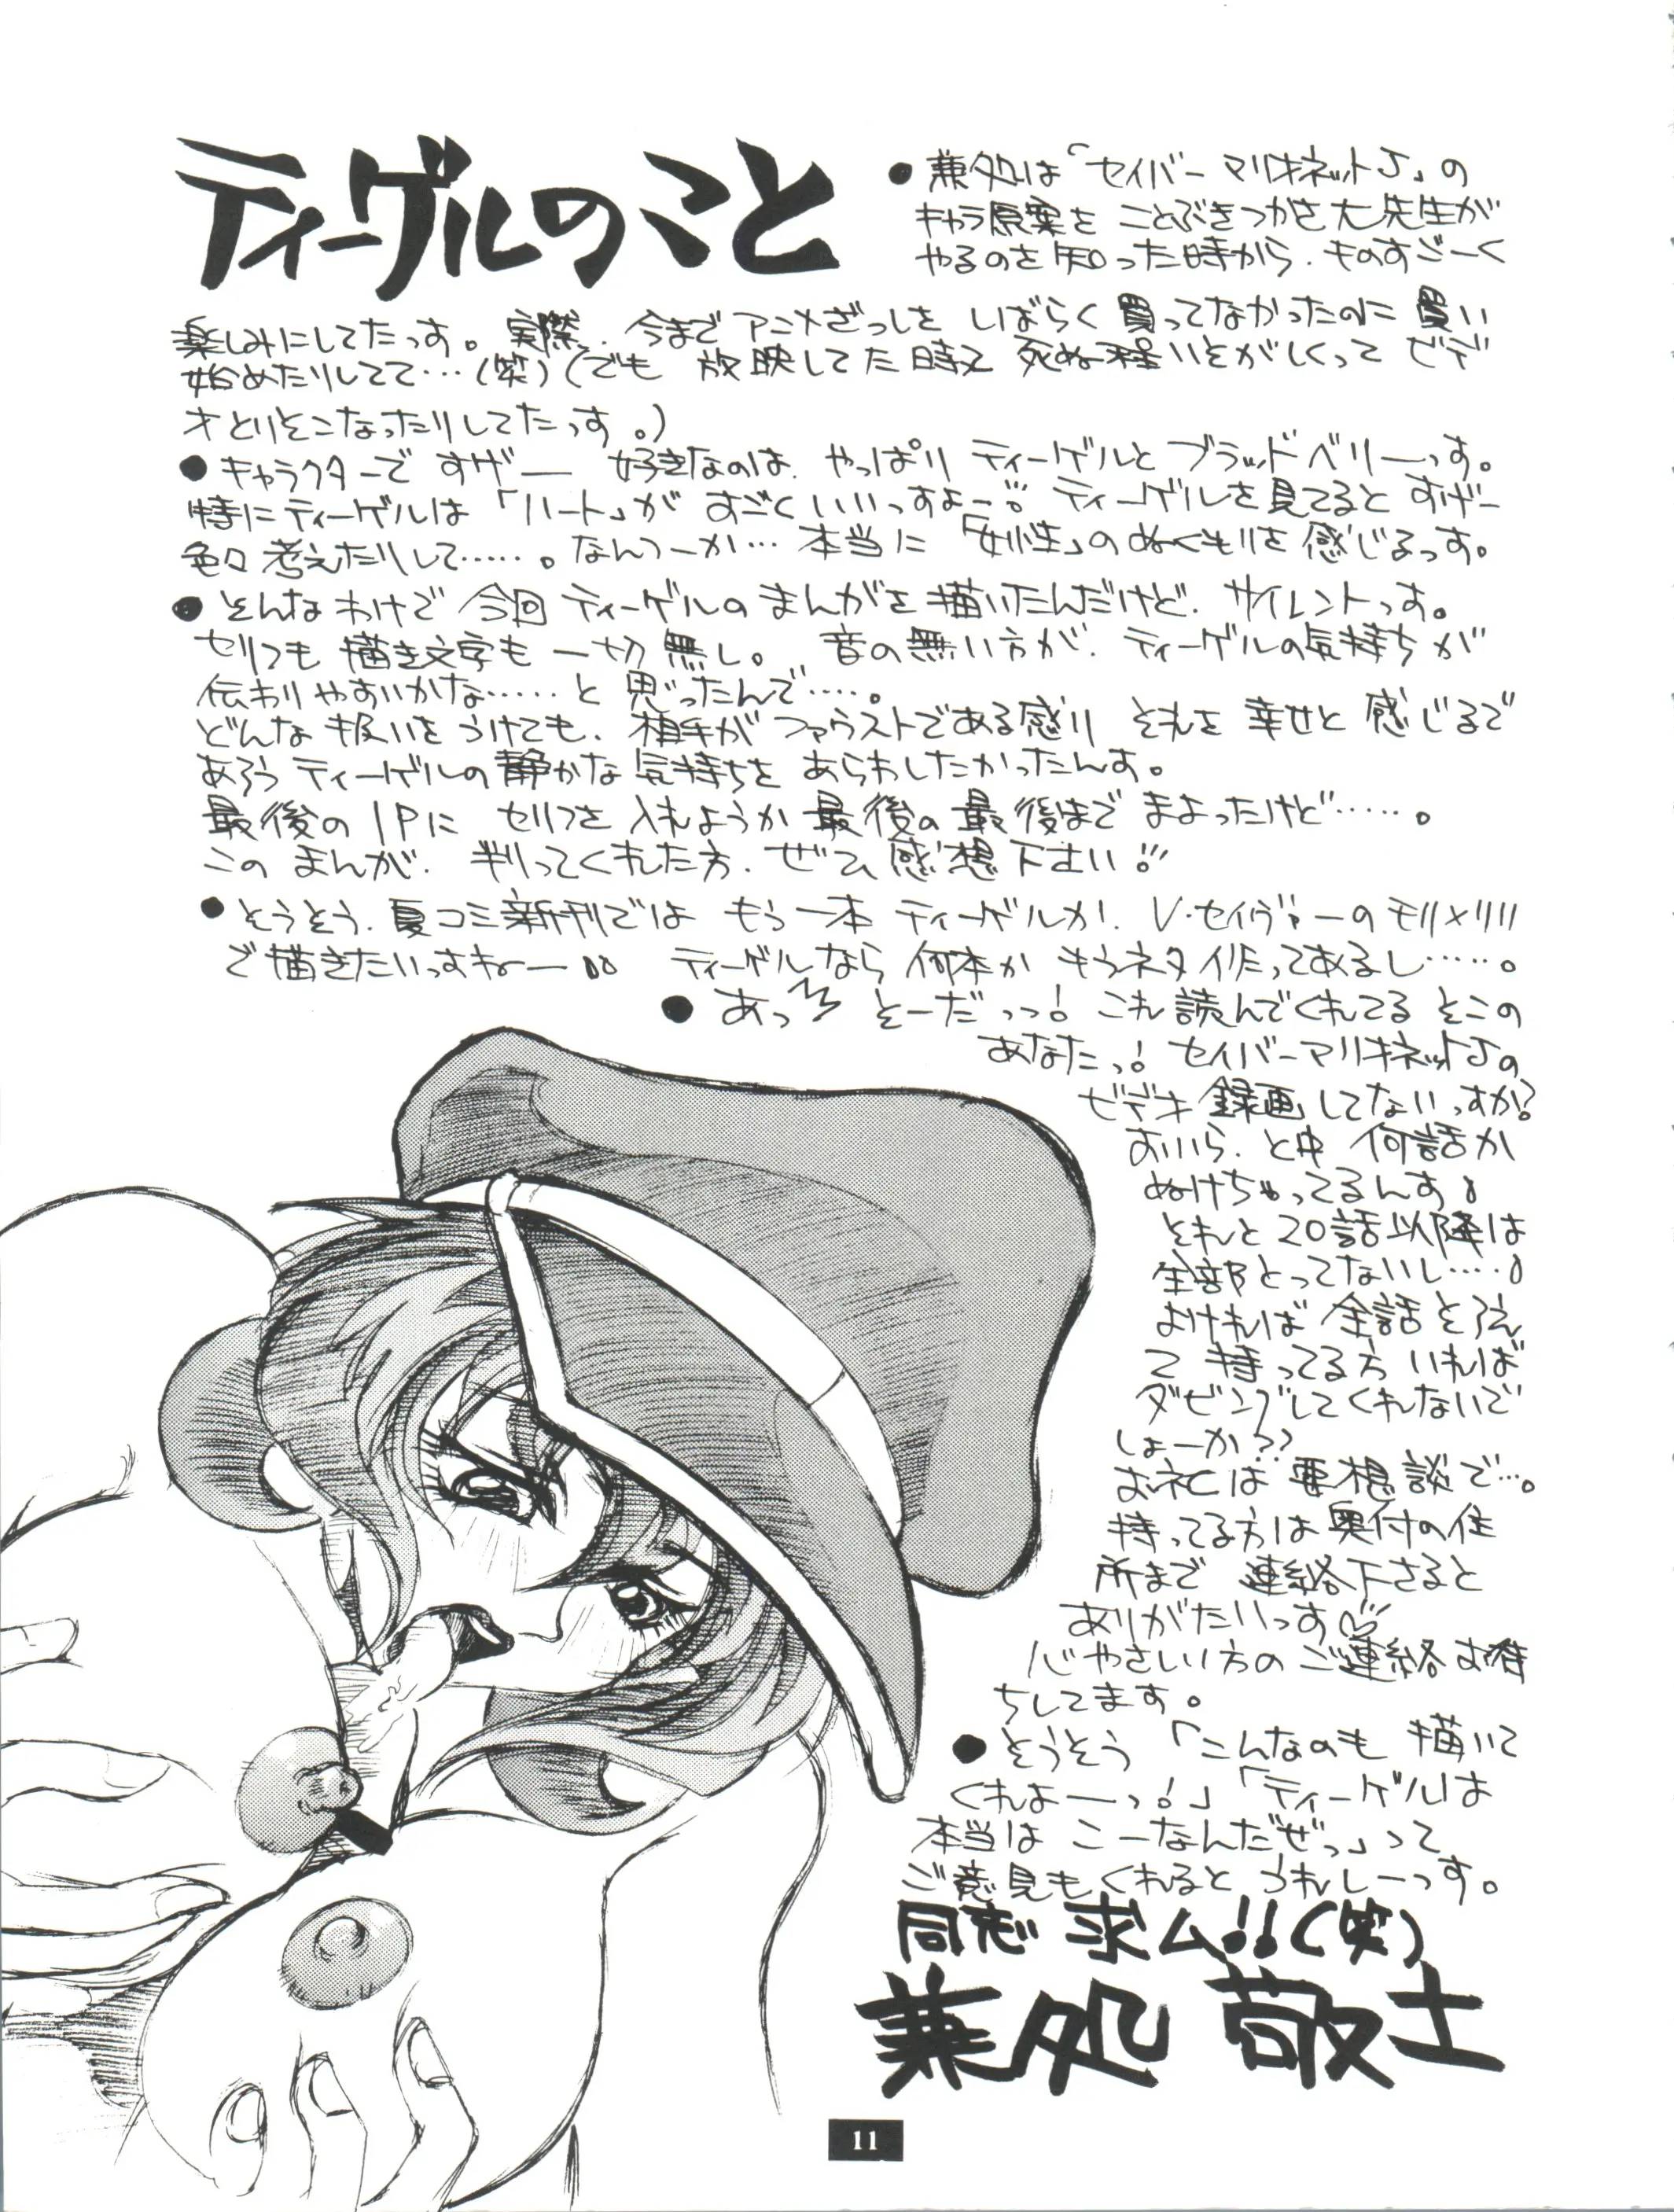 ティーゲルのこと
●兼処は「セイバーマリオネットJ」の
キャラ原案を ことぶきつかさ大先生が
やるのを知った時から、ものすごーく
楽しみにしてたっす。実際、今までアニメざっしを しばらく買ってなかったのに買い
始めたりしてて…(笑)(でも 放映してた時え 死ぬ程いそがしくって ビデ
オとりそこなったりしてたっす。)
●キャラクターで すげー 好きなのは、やっぱり ティーゲルと ブラッドベリーっす。
特にティーゲルは「ハート」が すごくいいっすよー!! ティーゲルを見てると すげー
色々考えたりして……。なんつーか… 本当に「女性」のぬくもりを感じるっす。
●そんなわけで 今回 ティーゲルのまんがを描いたんだけど、サイレントっす。
セリフも 描き文字も 一切無し。 音の無い方が、ティーゲルの気持ちが
伝わりやすいかな……と思ったんで…。
どんな扱いをうけても、相手がファウストである感り それを幸せと感じるで
あろう ティーゲルの静かな気持ちを あらわしたかったんす。
最後の1Pに セリフを入れようか最後の最後までまよったけど……。
このまんが、判ってくれた方、ぜひ感想下さい!!
●そうそう、夏コミ新刊では もう一本 ティーゲルか! V・セイヴァーのモリメリリリ
で描きたいっすねー ティーゲルなら 何本か もうネタ作ってあるし……。
●あっ そーだっっ! これ読んでくれてる そこの
あなたっ! セイバーマリオネットJの
ビデオ録画してないっすか?
おいら、と中 何話か
ぬけちゃってるんす
それと20話以降は
全部とってないし…
よければ 全話そろえ
て持ってる方いれば
ダビングしてくれないで
しょーか??
お礼は要相談で…。
持ってる方は奥付の住
所まで 連絡下さると
ありがたいっす♡
心やさしい方のご連絡お待
ちしてます。
●そうそう「こんなのも 描いて
くれよーっ!」「ティーゲルは
本当は こーなんだぜっ」って
ご意見もくれると うれしーっす。
同志 求ム!!(笑)
兼処 敬士
11